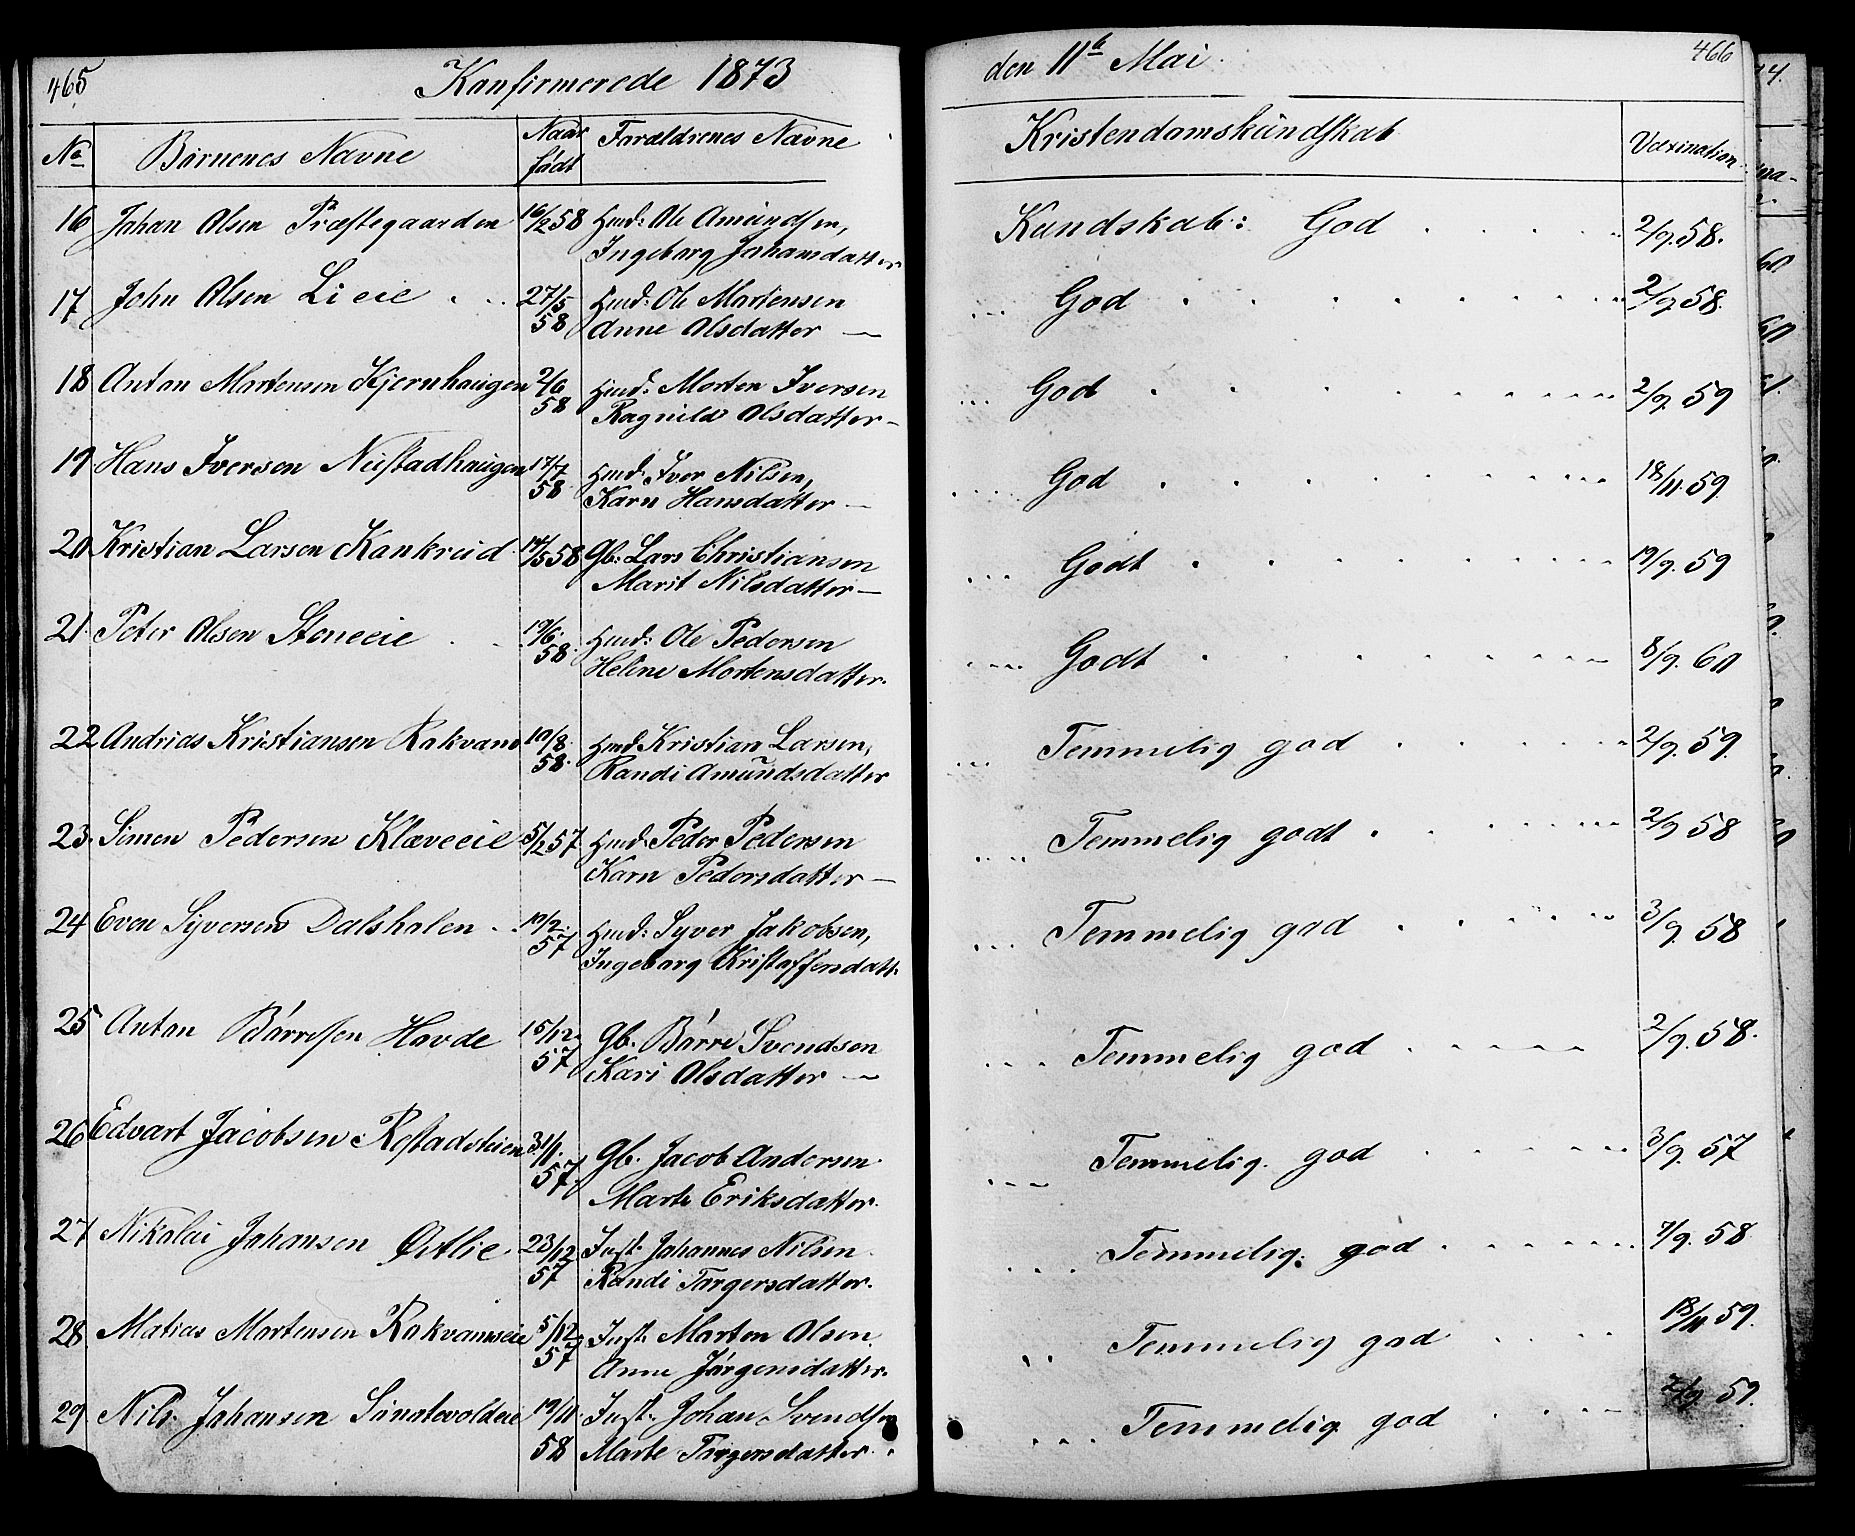 465
Konfirmerede 1873
No Børnenes Navne Naar født Forældrenes Navne
16 Johan Olsen Præstegaarden 16/2 58 Husd: Ole Amundsen,
Ingeborg Johansdatter
17 John Olsen Lieie 27/5 58 Husd: Ole Martensen
Anne Olsdatter —
18 Anton Martensen Kjernhaugen 2/6 58 Husd: Morten Iversen
Ragnild Olsdatter —
19 Hans Iversen Neistadhaugen 17/7 58 Husd: Iver Nilsen,
Karn Hansdatter —
20 Kristian Larsen Kankreid 17/5 58 Gb: Lars Christiansen
Marit Nilsdatter —
21. Peter Olsen Steneeie 19/6. 58. Husd: Ole Pedersen
Heline Mortensdatter.
22 Andrias Kristiansen Rakvand 19/8. 58. Husd Kristian Larsen,
Randi Amundsdatter
23. Simen Pedersen Klæveeie 5/2 57 Husd: Peder Pedersen
Karn Pedersdatter —
24 Even Syversen Dalsholen 19/2. 57 Husd: Syver Jakobsen,
Ingeborg Kristoffersdatt.
25 Anton Børresen Hovde 15/12 57 Gb. Børre Svendsen
Kari Olsdatter —
26 Edvart Jacobsen Rostadsteien 31/1. 57. Gb. Jacob Andersen
Marte Eriksdatter.
27 Nikolai Johansen Østlie. 23/12 57 Inst: Johannes Nilsen
Randi Torgersdatter.
28. Matias Mortensen Rakvamseie 5/12 57 Inst: Morten Olsen
Anne Jørgensdatter.
29 Nils Johansen 19/11 58 Inst: Johan Svendsen
Marte Torgersdatter.
den 11te Mai.
466
Kristendomskundskab Vaxination
Kundskab: God 2/9. 58.
God 2/9 58.
God 2/9. 59
God 18/11. 59
Godt 19/9. 59
Godt 8/9. 60
Temmelig god 2/9. 59.
Temmelig godt 2/9 58
Temmelig god 3/9. 58
Temmelig god 2/9. 58.
Temmelig god 3/9. 57
Temmelig god 7/9. 58
Temmelig god 18/11 59.
Temmelig god 2/9. 59.